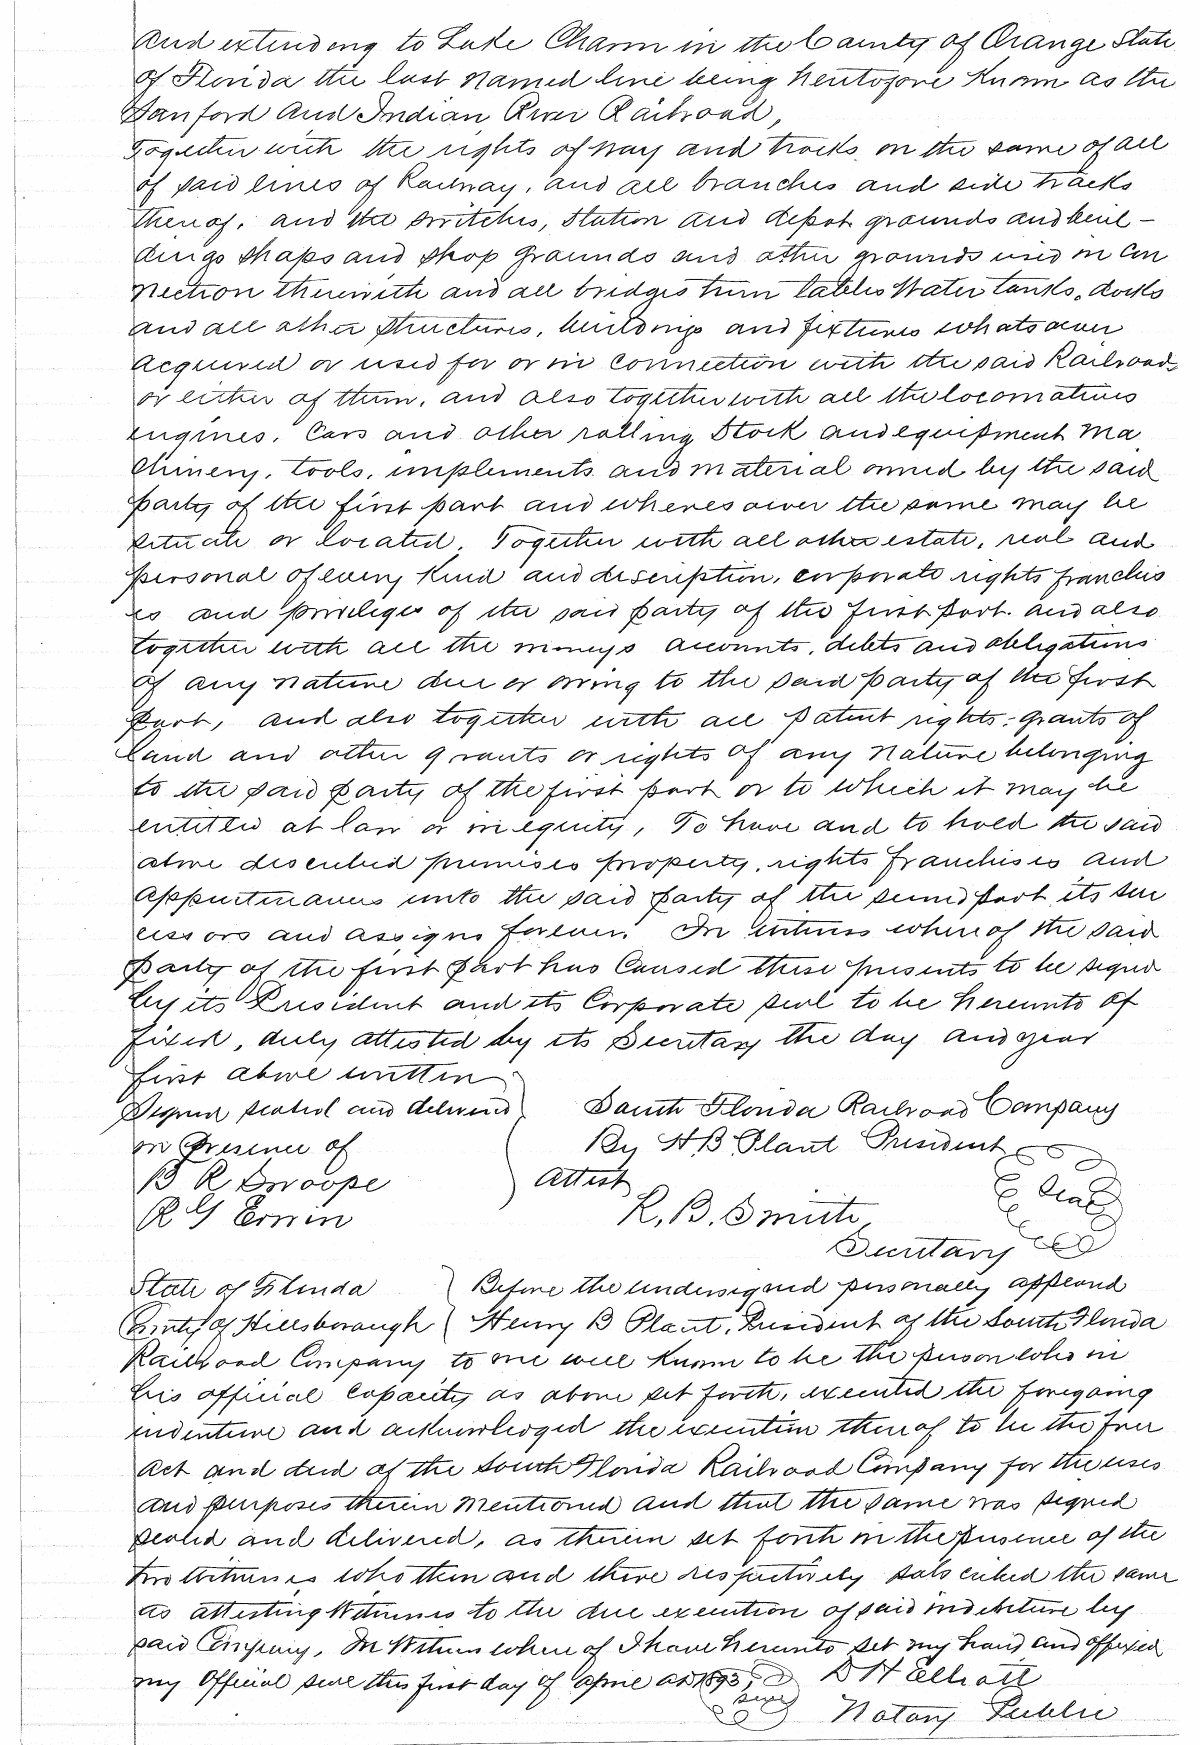 and extending to Lake Charm in the County of Orange State
of Florida the last named line being heretofore Known as the
Sanford and Indian River Railroad,
Together with the rights of way and tracks on the same of all
of said lines of Railway, and all branches and side tracks
thereof, and the switches, station and depot grounds and buil-
dings shops and shop grounds and other grounds used in con
nection therewith and all bridges turn tables Water tanks, docks
and all other structures, buildings and fixtures whatsoever
acquired or used for or in connection with the said Railroads
or either of them, and also together with all the locomotives
engines, Cars and other rolling Stock and equipment ma
chinery, tools, implements and material owned by the said
party of the first part and wheresoever the same may be
situate or located. Together with all other estate, real and
personal of every Kind and description, corporate rights franchis
es and privileges of the said party of the first part. and also
together with all the moneys accounts, debts and obligations
of any nature due or owing to the said party of the first
part, and also together with all patent rights, grants of
land and other grants or rights of any nature belonging
to the said party of the first part or to which it may be
entitled at law or in equity, To have and to hold the said
above described premises property, rights franchises and
appurtenances unto the said party of the second part its suc
cessors and assigns forever. In witness whereof the said
party of the first part has Caused these presents to be signed
by its President and its Corporate seal to be hereunto af
fixed, duly attested by its Secretary the day and year
first above written
Signed sealed and delivered South Florida Railroad Company
in Presence of By H.B. Plant President
B R Swoope Attest Seal
R G Erwin R. B. Smith
Secretary
State of Florida Before the undersigned personally appeared
County of Hillsborough Henry B Plant, President of the South Florida
Railroad Company to me well Known to be the person who in
his official Capacity as above set forth, executed the foregoing
indenture and acknowledged the execution thereof to be the free
act and deed of the South Florida Railroad Company for the uses
and purposes therein mentioned and that the same was signed
sealed and delivered, as therein set forth in the presence of the
two Witnesses who then and there respectively subscribed the same
as attesting Witnesses to the due execution of said indenture by
said Company. In Witness whereof I have hereunto set my hand and affixed
my Official seal this first day of April AD 1893, D H Elliott
Seal Notary Public